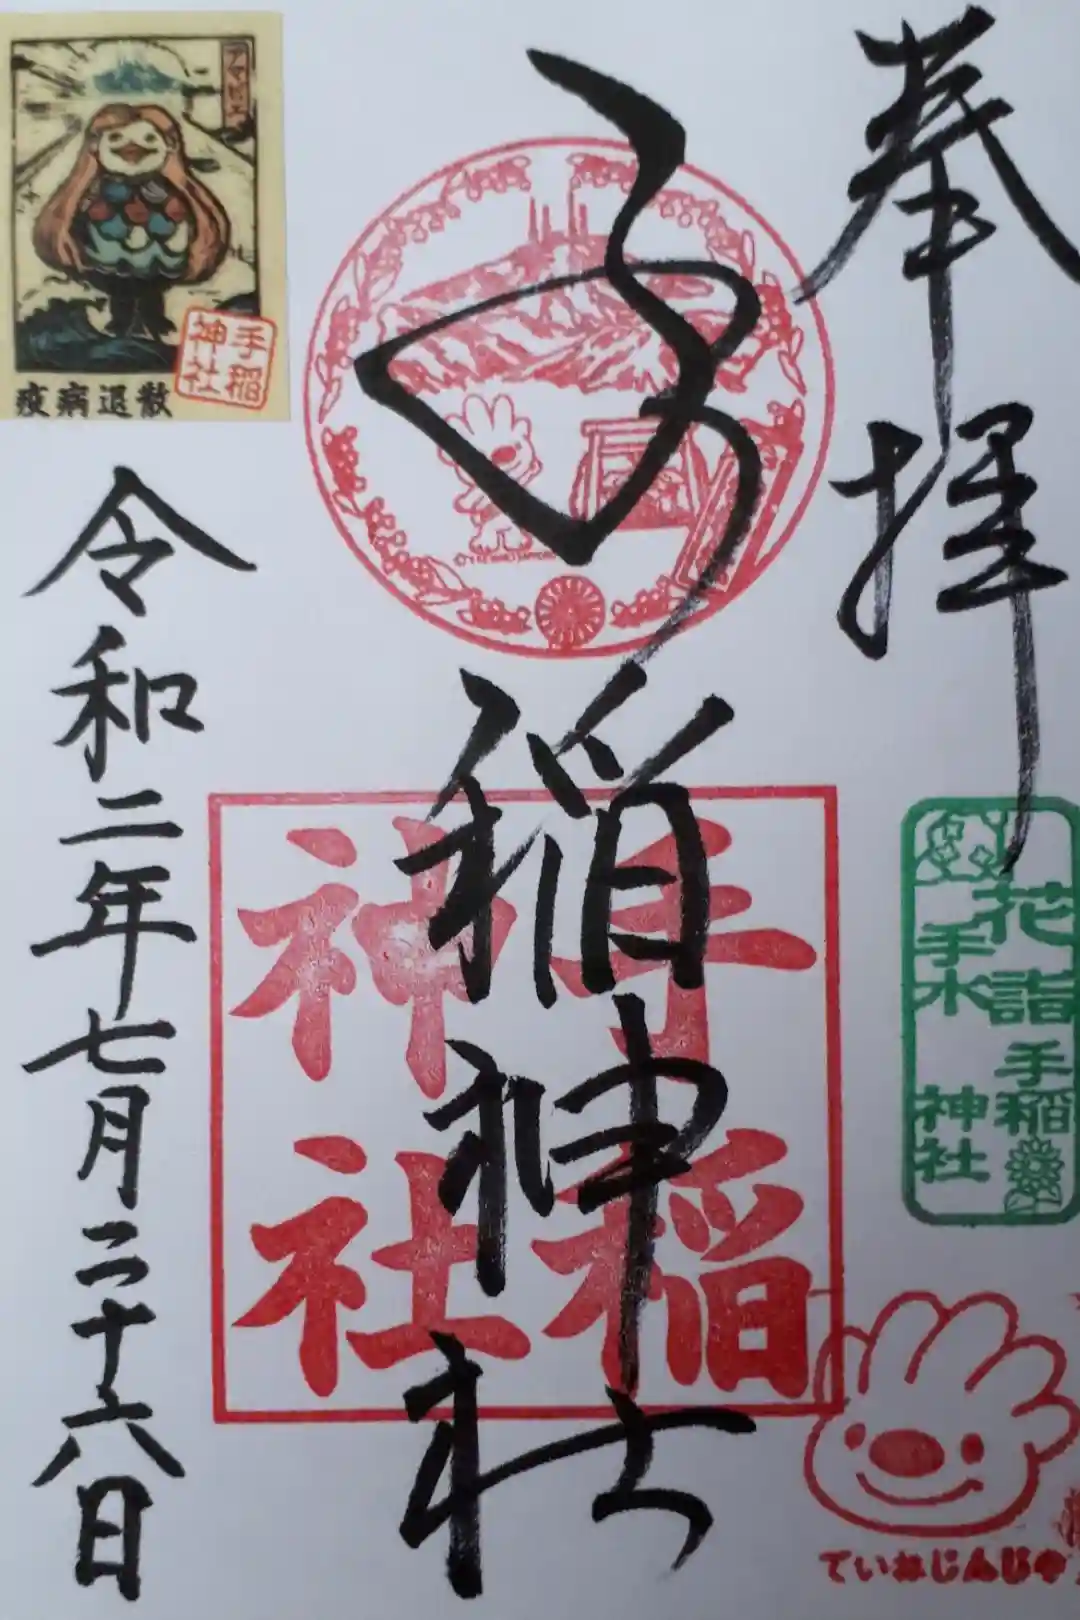 奉拝
花詰
手水
手稲
神社
ていねじんじゃ
手稲神社
手稲
神社
アマビエ
疫病退散
手稲
神社
令和二年七月二十六日